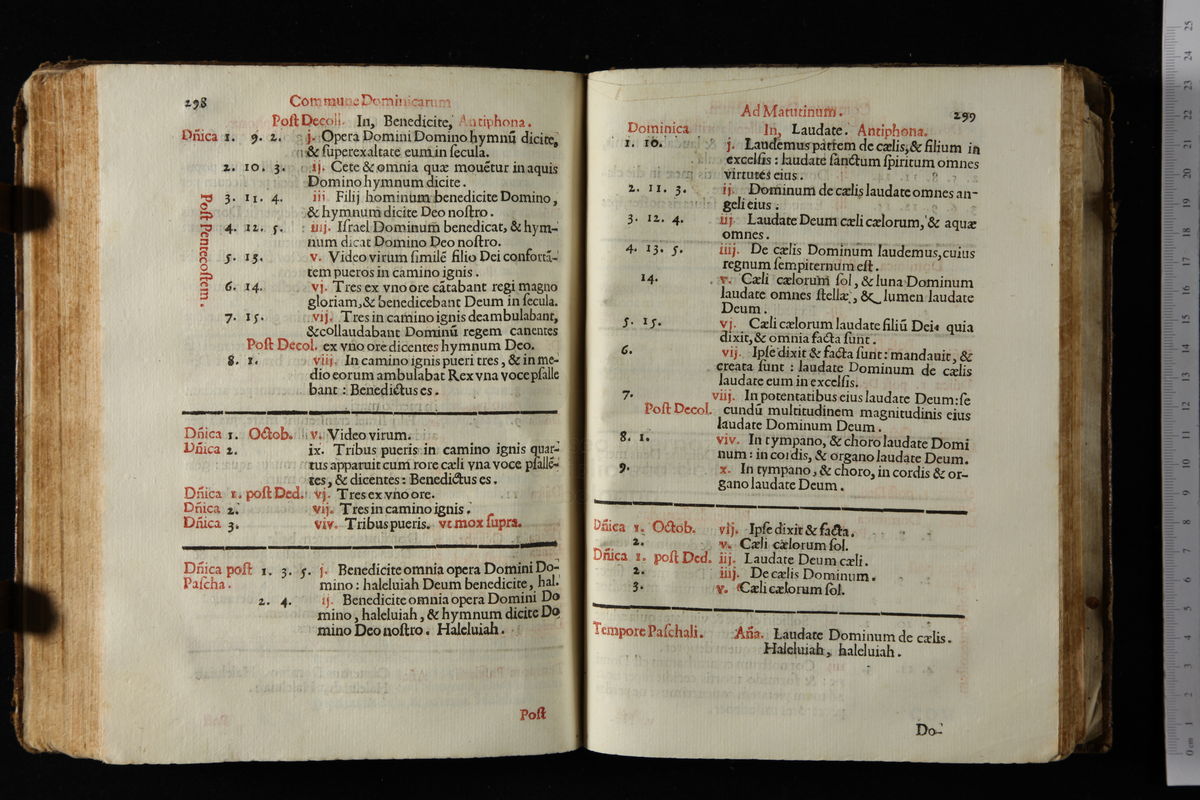 298
Commune Dominicarum
Post Decoll. In, Benedicite, Antiphona.
Dñica 1. 9. 2. j. Opera Domini Domino hymnũ dicite,
& superexaltate eum in secula.
2. 10. 3. ij. Cete & omnia quæ mouẽtur in aquis
Domino hymnum dicite.
Post Pentecostem.
3. 11. 4. iij Filij hominum benedicite Domino,
& hymnum dicite Deo nostro.
4. 12. 5. iiij. Israel Dominum benedicat, & hym-
num dicat Domino Deo nostro.
5. 13. v. Video virum similẽ filio Dei confortã-
tem pueros in camino ignis.
6. 14. vj. Tres ex vno ore cãtabant regi magno
gloriam, & benedicebant Deum in secula.
7. 15. vij. Tres in camino ignis deambulabant,
& collaudabant Dominũ regem canentes
Post Decol. ex vno ore dicentes hymnum Deo.
8. 1. viij. In camino ignis pueri tres, & in me-
dio eorum ambulabat Rex vna voce psalle
bant: Benedictus es.
Dñica 1. Octob. v. Video virum.
Dñica 2. ix. Tribus pueris in camino ignis quar-
tus apparuit cum rore cæli vna voce psallẽ-
tes, & dicentes: Benedictus es.
Dñica 1. post Ded. vj. Tres ex vno ore.
Dñica 2. vij. Tres in camino ignis.
Dñica 3. viv. Tribus pueris. vt mox supra.
Dñica post 1. 3. 5. j. Benedicite omnia opera Domini Do-
Pascha. mino: haleluiah Deum benedicite, hal.
2. 4. ij. Benedicite omnia opera Domini Do
mino, haleluiah, & hymnum dicite Do
mino Deo nostro. Haleluiah.
Post
Ad Matutinum. 299
Dominica In, Laudate. Antiphona.
1. 10. j. Laudemus patrem de cælis, & filium in
excelsis: laudate sanctum spiritum omnes
virtutes eius.
2. 11. 3. ij. Dominum de cælis laudate omnes an-
geli eius.
3. 12. 4. iij. Laudate Deum cæli cælorum, & aquæ
omnes.
4. 13. 5. iiij. De cælis Dominum laudemus, cuius
regnum sempiternum est.
14. v. Cæli cælorum sol, & luna Dominum
laudate omnes stellæ, & lumen laudate
Deum.
5. 15. vj. Cæli cælorum laudate filiũ Dei: quia
dixit, & omnia facta sunt.
6. vij. Ipse dixit & facta sunt: mandauit, &
creata sunt: laudate Dominum de cælis
laudate eum in excelsis.
7. viij. In potentatibus eius laudate Deum: se
Post Decol. cundũ multitudinem magnitudinis eius
laudate Dominum Deum.
8. 1. viv. In tympano, & choro laudate Domi
num: in cordis, & organo laudate Deum.
9. x. In tympano, & choro, in cordis & or-
gano laudate Deum.
Dñica 1. Octob. vij. Ipse dixit & facta.
2. v. Cæli cælorum sol.
Dñica 1. post Ded. iij. Laudate Deum cæli.
2. iiij. De cælis Dominum.
3. v. Cæli cælorum sol.
Tempore Paschali. Añа. Laudate Dominum de cælis.
Haleluiah, haleluiah.
Do-